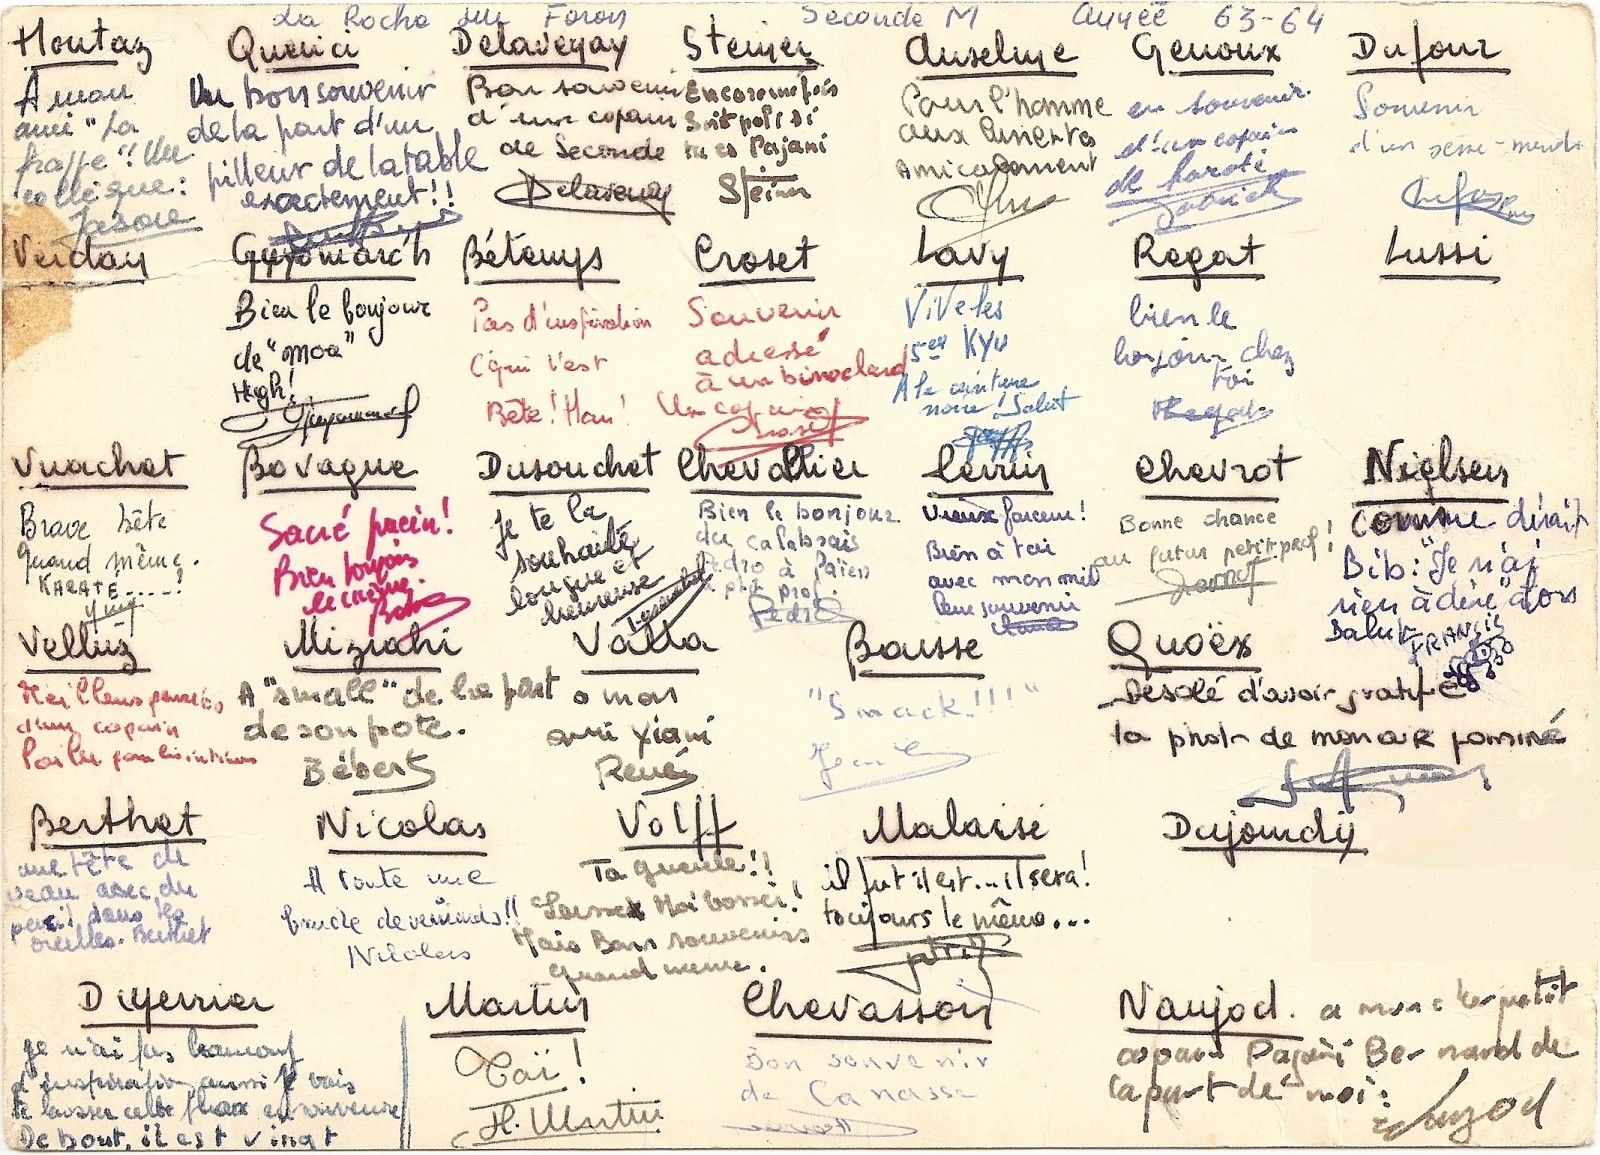 La Roche sur Foron Seconde M Année 63-64
Houtaz
A mon
ami "La
frappe"!! Un
collègue:
Quenci
Un bon souvenir
de la part d'un
pilleur de la table
exactement!!
Delavenay
Bon souvenir
d'un copain
de Seconde
Delavenay
Steiner
Encore une fois
Soit poli si
tu es Pajani
Steiner
Anselme
Pour l'homme
aux
Amicalement
Genoux
en souvenir
d'un copain
de
Patrick
Dufour
Souvenir
d'un
Dufour
Verdan
Guyomarc'h
Bien le bonjour
de "moa"
Hugh!
Guyomarc'h
Bétemps
Pas d'inspiration
c'qui s'est
Bête! Han!
Croset
Souvenir
adressé
à un binoclard
Un copain
Croset
Lavy
Vive les
5er KYU
A la ceinture
noire! Salut
Regat
bien le
bonjour chez
toi
Regat
Lussi
Vuachet
Brave bête
quand même.
KARATE.....!
Bovagne
Sacré païen!
Bien toujours
le même.
Bob
Dusouchet
Je te la
souhaite
longue et
heureuse
Chevallier
Bien le bonjour
du calabrais
Pedro à Païen
le ptit prof.
Pedro
Perrin
Vieux farceur!
Bien à toi
avec mon meil
leur souvenir
Claude
Chevrot
Bonne chance
au futur petit prof!
Chevrot
Nielsen
Comme dirait
Bib: "Je n'ai
rien à dire" alors
Salut
FRANCIS
Velluz
Meilleures pensées
d'un copain
Mizrahi
A "small" de la part
de son pote.
Bébert
Vatta
a mon
ami Yiani
René
Bausse
"Smack!!!"
Quoëx
Désolé d'avoir gratifié
ta phot- de mon air
Berthet
une tête de
veau avec du
persil dans les
oreilles. Berthet
Nicolas
A toute une
bande de veinards!!
Nicolas
Volff
Ta gueule!!
Laisse Moi bosser!
Mais Bons souvenirs
quand même.
Malaisé
il fut il est... il sera!
toujours le même...
Dujourdy
Duperrier
Je n'ai pas beaucoup
d'inspiration aussi je vais
te laisser cette
Debout, il est vingt
Martin
Taï!
H. Martin
Chevasson
Bon souvenir
de Canasse
Naujod. a mon cher petit
copain Pajani Bernard de
la part de moi:
Naujod